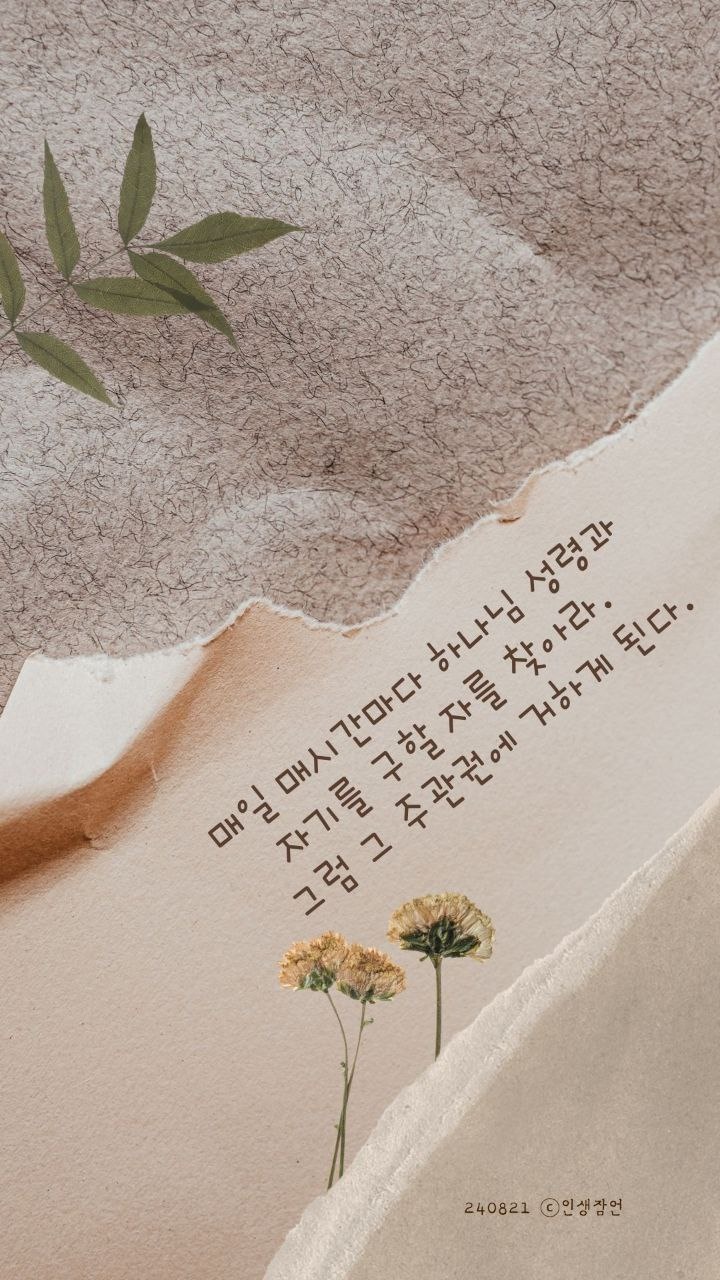 매일 매시간마다 하나님 성령과
자기를 구할 자를 찾아라.
그럼 그 주관권에 거하게 된다.
240821 ⓒ인생잠언